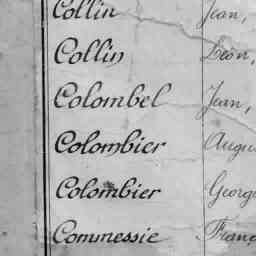 Collin Jean,
Collin Léon,
Colombel Jean,
Colombier
Colombier
Commessie